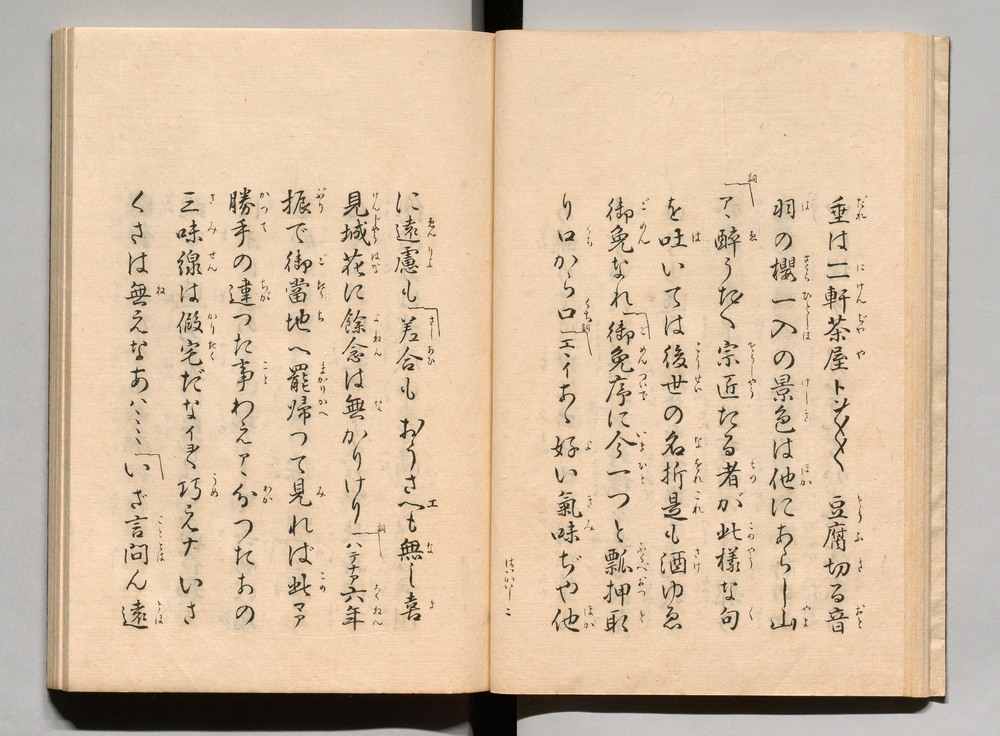 垂は二軒茶屋ト 豆腐切る音
羽の櫻一入の景色は他にあらし山
アヽ醉うたく宗匠たる者が此樣な句
を吐いては後世の名折是も酒ゆゑ
御免なれ御免序に今一つと瓢押取
り口から口エヽイあゝ好い氣味ぢや他
に遠慮も差合も おうさへも無し喜
見城花に餘念は無かりけりハテナア六年
振で御當地へ罷歸つて見れば此マア
勝手の違つた事わえアヽ分つたあの
三味線は假宅だなイヨ巧えナ いさ
くさは無えなあハヽヽヽいざ言問ん遠